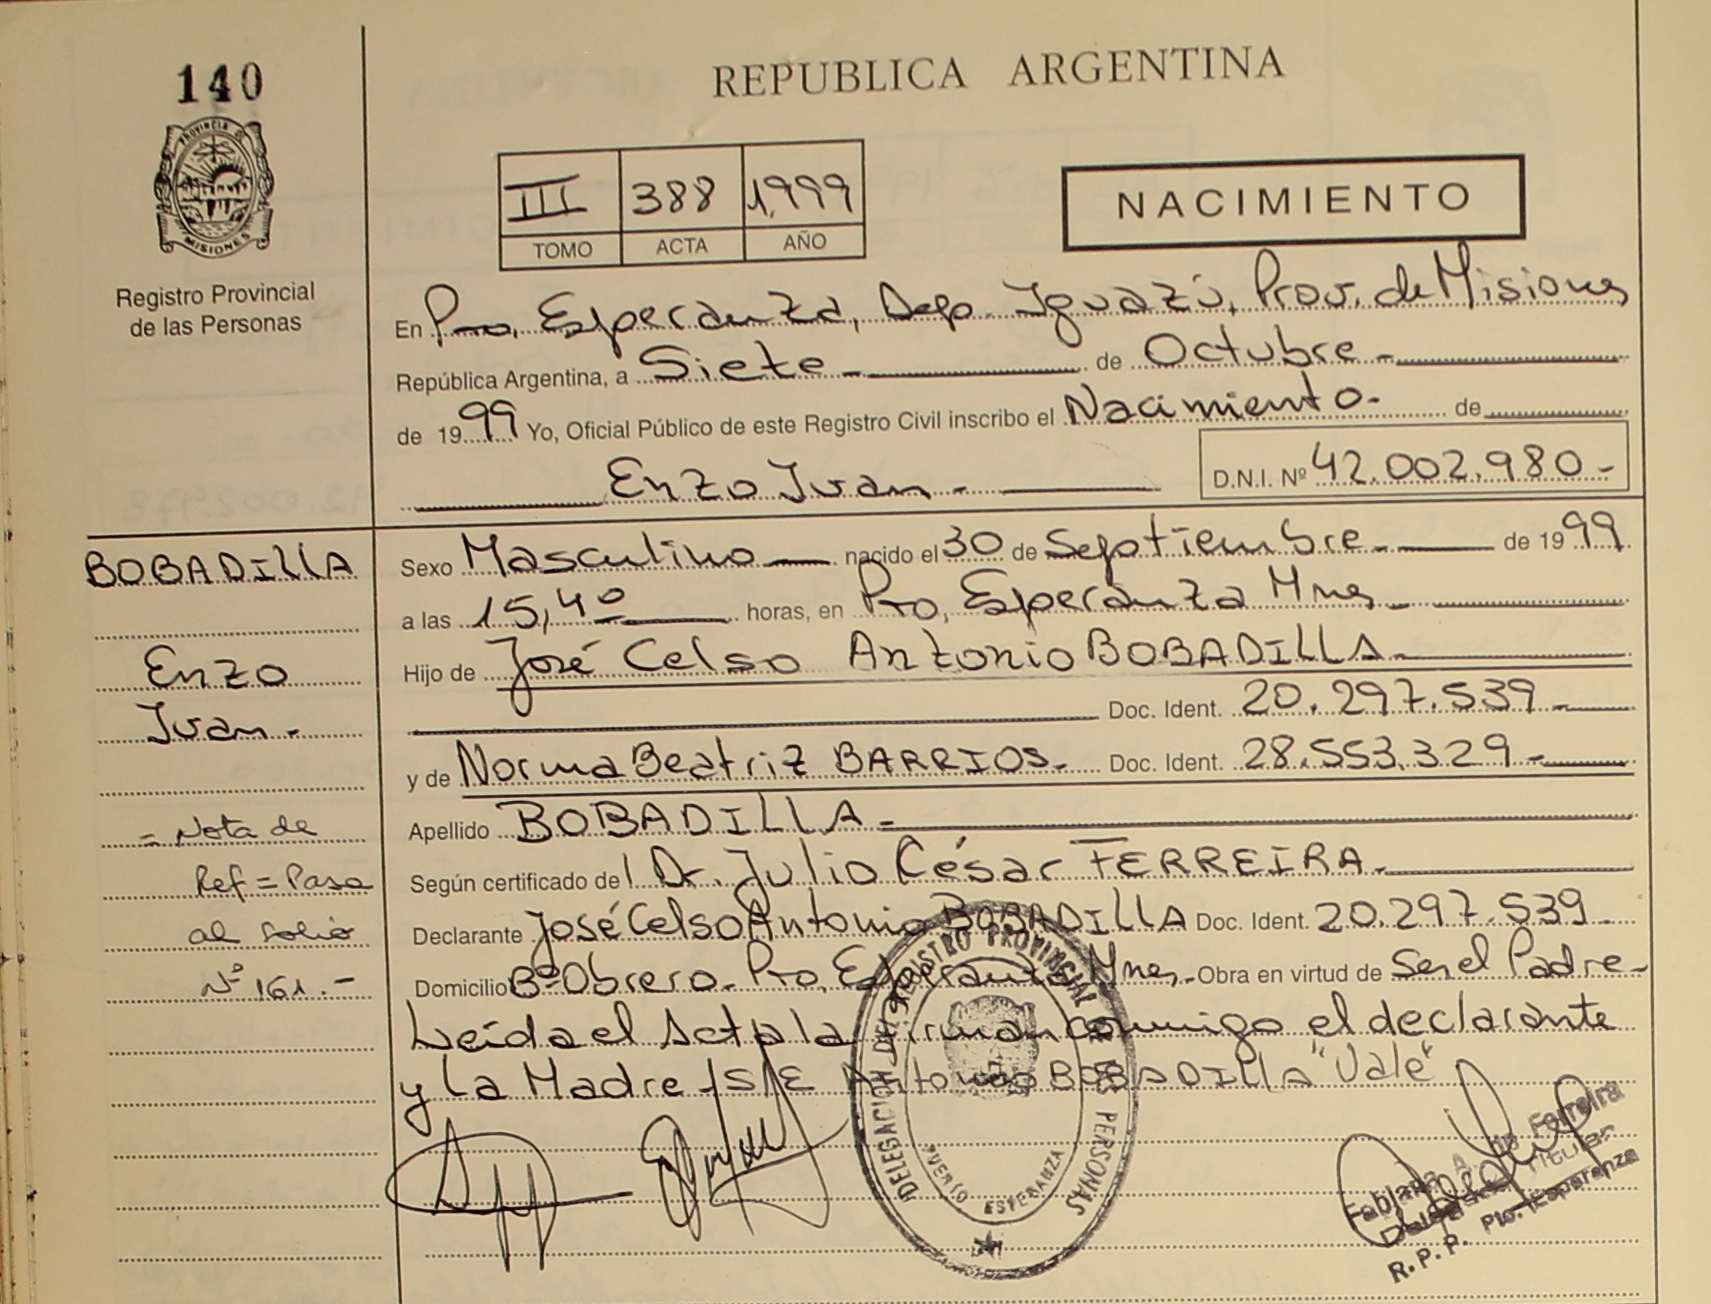 140
REPUBLICA ARGENTINA
PROVINCIA DE
MISIONES
Registro Provincial
de las Personas
III 388 1,999
TOMO ACTA AÑO
NACIMIENTO
En Pto, Esperanza, Dep. Iguazú, Prov. de Misiones
República Argentina, a Siete - de Octubre -
de 1999 Yo, Oficial Público de este Registro Civil inscribo el Nacimiento - de
Enzo Ivan - D.N.I. Nº 42.002.980-
BOBADILLA
Enzo
Ivan -
= Nota de
Ref = Pasa
al folio
Nº 161.-
Sexo Masculino nacido el 30 de Septiembre - de 1999
a las 15,40 horas, en Pto, Esperanza Mnes -
Hijo de José Celso Antonio BOBADILLA -
Doc. Ident. 20.297.539 -
y de Norma Beatriz BARRIOS - Doc. Ident. 28.553.329 -
Apellido BOBADILLA -
Según certificado del Dr. Julio César FERREIRA -
Declarante José Celso Antonio BOBADILLA Doc. Ident. 20.297.539
Domicilio Bº Obrero - Pto, Esperanza Mnes - Obra en virtud de Ser el Padre -
Leída el Acta la firman conmigo el declarante
y la Madre /S/E Antonio BOBADILLA "Vale"
DELEGACION DEL REGISTRO PROVINCIAL DE LAS PERSONAS
PUERTO ESPERANZA
Ferreira
Titular
R.P.P. Pto. Esperanza